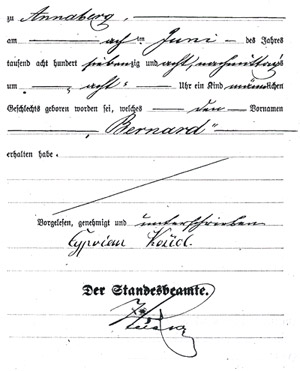 zu Annaberg,
am acht ten Juni des Jahres
tausend acht hundert siebenzig und acht, nachmittags
um acht Uhr ein Kind männlichen
Geschlechts geboren worden sei, welches den Vornamen
„Bernard“
erhalten habe.
Vorgelesen, genehmigt und unterschrieben
Cyprian
Der Standesbeamte.